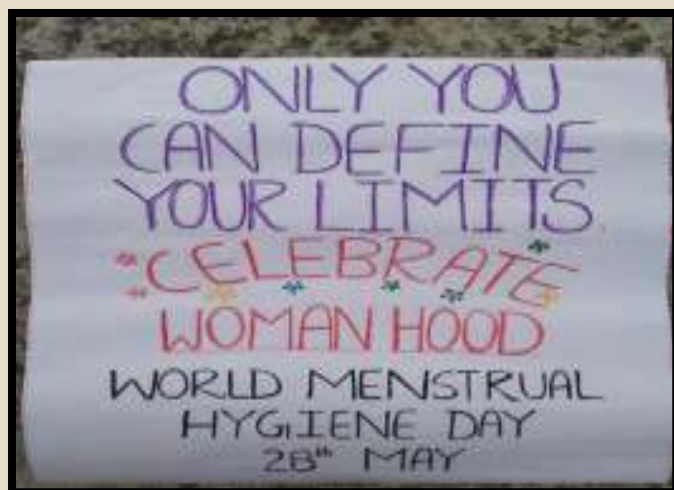 ONLY YOU
CAN DEFINE
YOUR LIMITS
CELEBRATE
WOMAN HOOD
WORLD MENSTRUAL
HYGIENE DAY
28th MAY